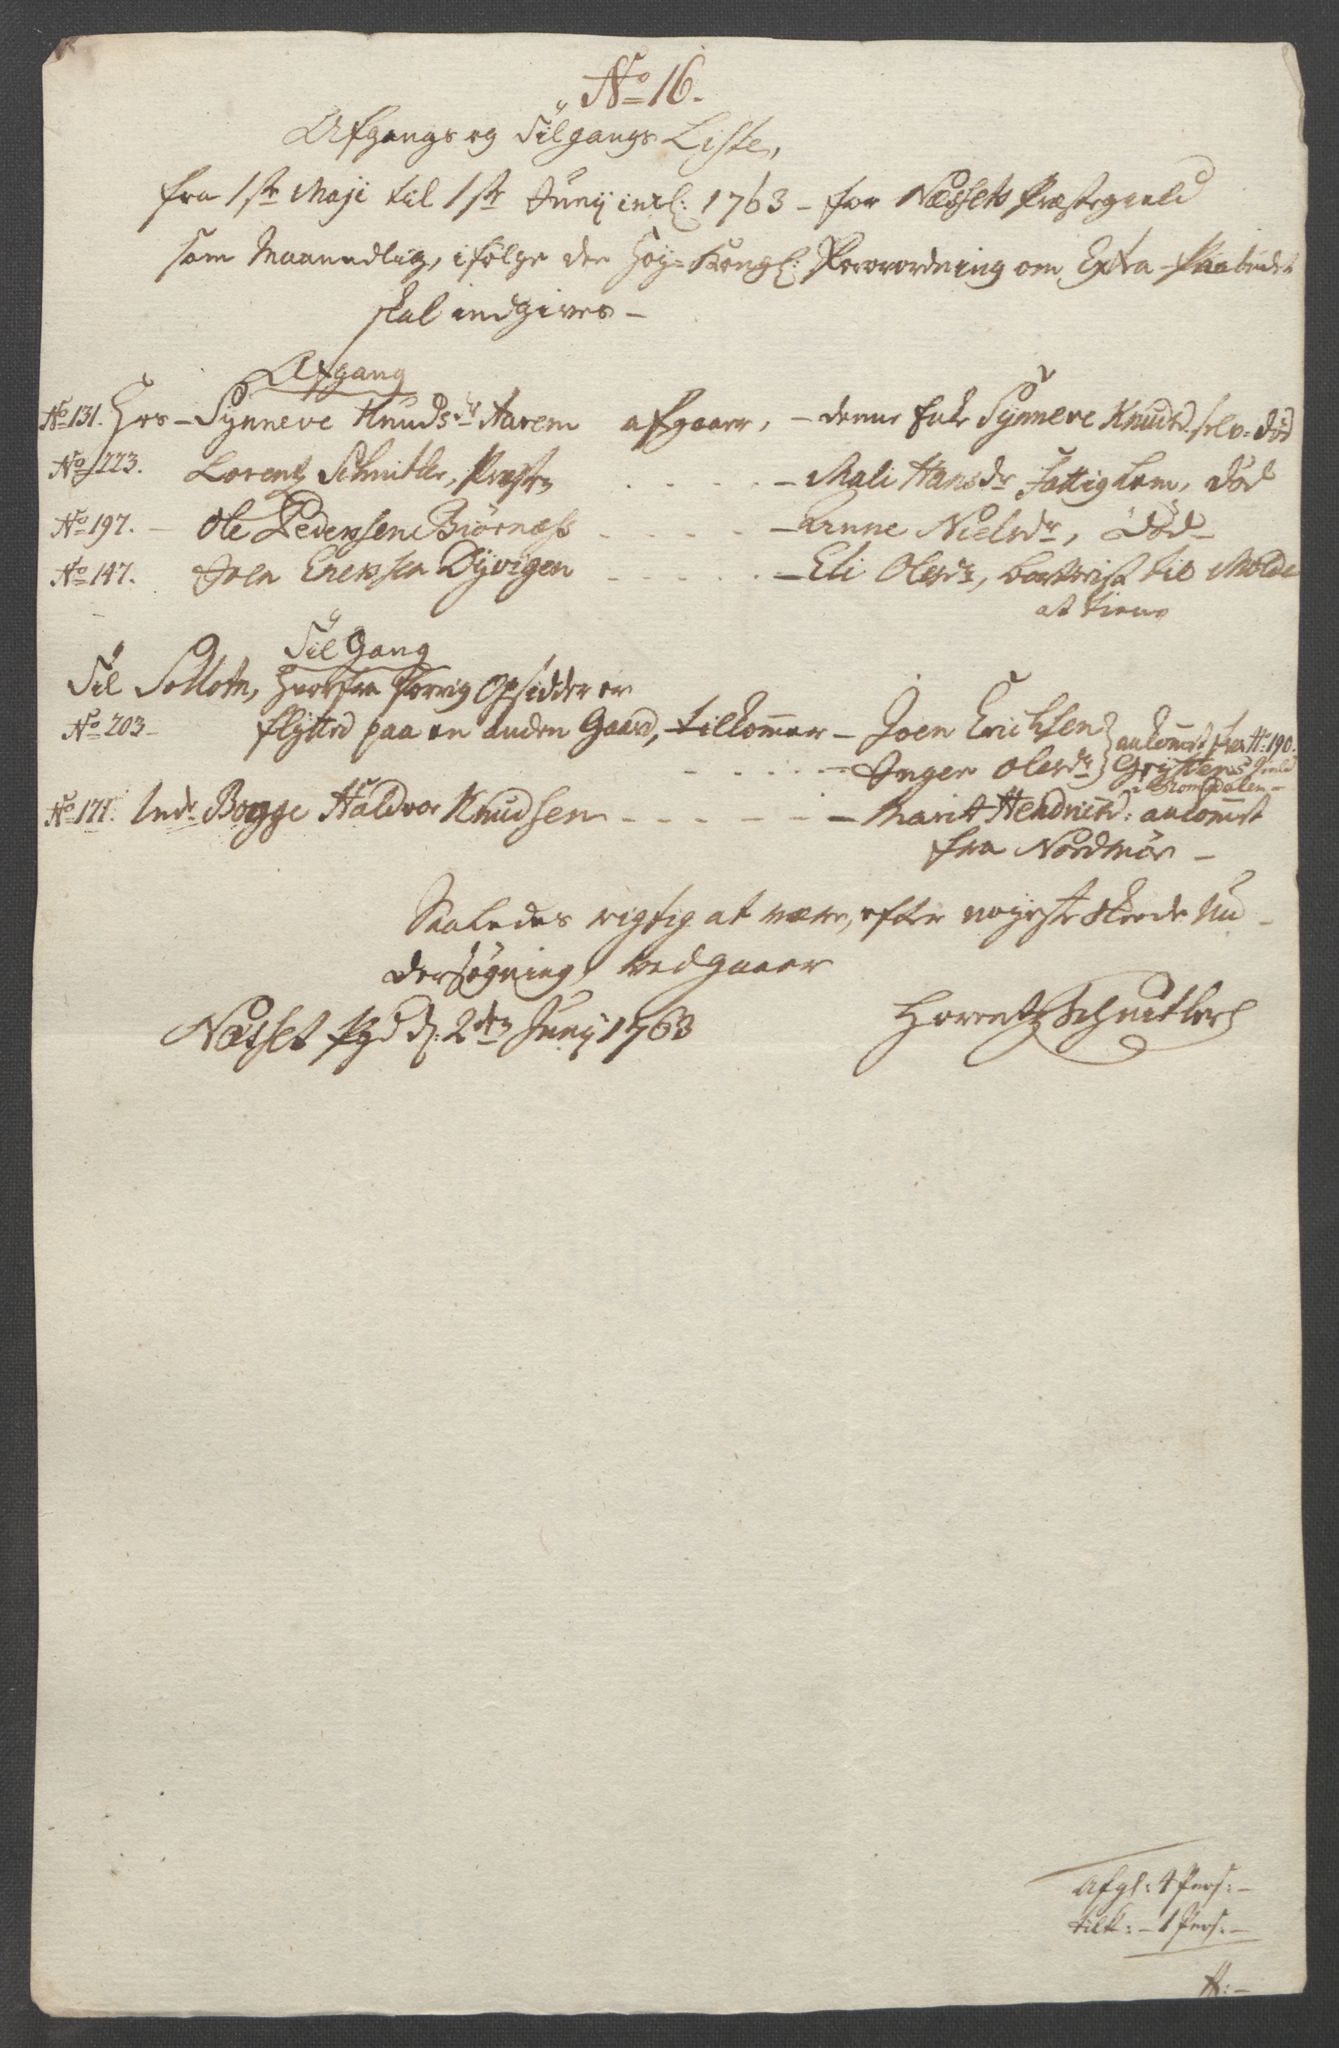 No 16.
Afgangs og Tilgangs Liste,
fra 1ste Maji til 1ste Junij incl: 1763 - for Næssets Præstegield
som Maanedlig, ifølge den Høy-Kongl: Forordning om Extra-Paabudet
skal indgives -
Afgang
No 131. Hos - Synneve Knudsdr Aarem afgaaer, - denne Enke Synneve Knudsd. selv - død
No 223. Lorentz Schnitler, Præsten - Mali Hansdr Fattiglem, død
No 197. - Ole Pedersen Biørnæss - Anne Nielsdr, død -
No 147. Joen Erichsen Dyvigen - Eli Olesdr, bortreist til Molde
at tiene
Til Gang
Til Sollotn, hvorfra forrig Opsidder er
No 203 - flytted paa en anden Gaard, tilkommer - Joen Erichsen ankomst fra No: 190.
- Inger Olesdr Gryttens Gield
i Romsdalen -
No 171. Indr Bogge Haldvor Knudsen - Marit Hendrichsd: ankomst
fra Nordmør -
Saaledes rigtig at være, efter nøyeste skeede Un-
dersøgning, vedgaaer
Næsset Pgd d: 2den Junij 1763 Lorentz Schnitler
Afgl: 4 Pers: -
tilk: - 1 Pers: -